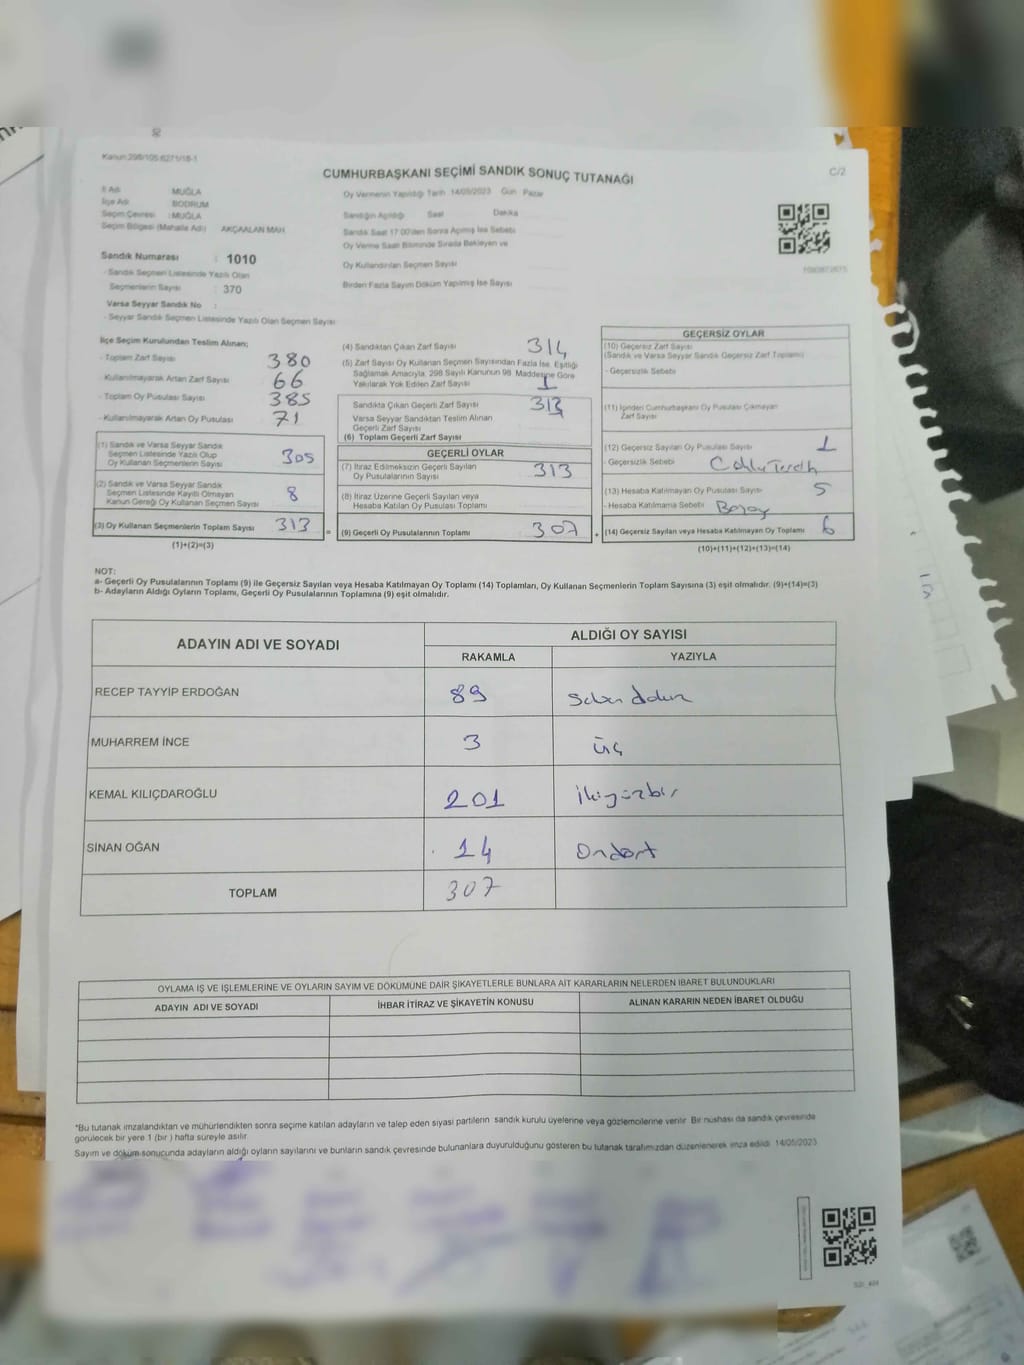 Kanun:298/105:6271/18-1
CUMHURBAŞKANI SEÇİMİ SANDIK SONUÇ TUTANAĞI
C/2
İl Adı : MUĞLA
İlçe Adı : BODRUM
Seçim Çevresi : MUĞLA
Seçim Bölgesi (Mahalle Adı) AKÇAALAN MAH.
Sandık Numarası : 1010
- Sandık Seçmen Listesinde Yazılı Olan
Seçmenlerin Sayısı : 370
Varsa Seyyar Sandık No :
- Seyyar Sandık Seçmen Listesinde Yazılı Olan Seçmen Sayısı
Oy Vermenin Yapıldığı Tarih 14/05/2023 Gün Pazar
Sandığın Açıldığı Saat Dakika
Sandık Saat 17:00'den Sonra Açılmış İse Sebebi
Oy Verme Saati Bitiminde Sırada Bekleyen ve
Oy Kullandırılan Seçmen Sayısı
Birden Fazla Sayım Döküm Yapılmış İse Sayısı
İlçe Seçim Kurulundan Teslim Alınan;
- Toplam Zarf Sayısı 380
- Kullanılmayarak Artan Zarf Sayısı 66
- Toplam Oy Pusulası Sayısı 385
- Kullanılmayarak Artan Oy Pusulası 71
(1) Sandık ve Varsa Seyyar Sandık
Seçmen Listesinde Yazılı Olup
Oy Kullanan Seçmenlerin Sayısı 305
(2) Sandık ve Varsa Seyyar Sandık
Seçmen Listesinde Kayıtlı Olmayan
Kanun Gereği Oy Kullanan Seçmen Sayısı 8
(3) Oy Kullanan Seçmenlerin Toplam Sayısı 313
(1)+(2)=(3)
(4) Sandıktan Çıkan Zarf Sayısı 314
(5) Zarf Sayısı Oy Kullanan Seçmen Sayısından Fazla İse, Eşitliği
Sağlamak Amacıyla, 298 Sayılı Kanunun 98. Maddesine Göre
Yakılarak Yok Edilen Zarf Sayısı 1
Sandıkta Çıkan Geçerli Zarf Sayısı 313
Varsa Seyyar Sandıktan Teslim Alınan
Geçerli Zarf Sayısı
(6) Toplam Geçerli Zarf Sayısı
GEÇERLİ OYLAR
(7) İtiraz Edilmeksizin Geçerli Sayılan
Oy Pusulalarının Sayısı 313
(8) İtiraz Üzerine Geçerli Sayılan veya
Hesaba Katılan Oy Pusulası Toplamı
= (9) Geçerli Oy Pusulalarının Toplamı 307
GEÇERSİZ OYLAR
(10) Geçersiz Zarf Sayısı
(Sandık ve Varsa Seyyar Sandık Geçersiz Zarf Toplamı)
- Geçersizlik Sebebi
(11) İçinden Cumhurbaşkanı Oy Pusulası Çıkmayan
Zarf Sayısı
(12) Geçersiz Sayılan Oy Pusulası Sayısı 1
- Geçersizlik Sebebi
(13) Hesaba Katılmayan Oy Pusulası Sayısı 5
- Hesaba Katılmama Sebebi
+ (14) Geçersiz Sayılan veya Hesaba Katılmayan Oy Toplamı 6
(10)+(11)+(12)+(13)=(14)
NOT:
a- Geçerli Oy Pusulalarının Toplamı (9) ile Geçersiz Sayılan veya Hesaba Katılmayan Oy Toplamı (14) Toplamları, Oy Kullanan Seçmenlerin Toplam Sayısına (3) eşit olmalıdır. (9)+(14)=(3)
b- Adayların Aldığı Oyların Toplamı, Geçerli Oy Pusulalarının Toplamına (9) eşit olmalıdır.
ADAYIN ADI VE SOYADI
ALDIĞI OY SAYISI
RAKAMLA YAZIYLA
RECEP TAYYİP ERDOĞAN 89
MUHARREM İNCE 3 üç
KEMAL KILIÇDAROĞLU 201 ikiyüzbir
SİNAN OĞAN 14 Ondört
TOPLAM 307
OYLAMA İŞ VE İŞLEMLERİNE VE OYLARIN SAYIM VE DÖKÜMÜNE DAİR ŞİKAYETLERLE BUNLARA AİT KARARLARIN NELERDEN İBARET BULUNDUKLARI
ADAYIN ADI VE SOYADI İHBAR İTİRAZ VE ŞİKAYETİN KONUSU ALINAN KARARIN NEDEN İBARET OLDUĞU
*Bu tutanak imzalandıktan ve mühürlendikten sonra seçime katılan adayların ve talep eden siyasi partilerin sandık kurulu üyelerine veya gözlemcilerine verilir. Bir nüshası da sandık çevresinde
görülecek bir yere 1 (bir) hafta süreyle asılır.
Sayım ve döküm sonucunda adayların aldığı oyların sayılarını ve bunların sandık çevresinde bulunanlara duyurulduğunu gösteren bu tutanak tarafımızdan düzenlenerek imza edildi. 14/05/2023